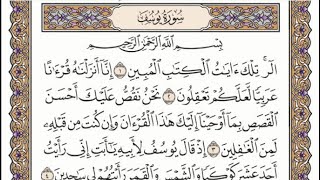 سُورَةُ يُوسُفَ
بِسْمِ ٱللَّهِ ٱلرَّحْمَٰنِ ٱلرَّحِيمِ
الٓر ۚ تِلْكَ ءَايَٰتُ ٱلْكِتَٰبِ ٱلْمُبِينِ ١ إِنَّآ أَنزَلْنَٰهُ قُرْءَٰنًا
عَرَبِيًّا لَّعَلَّكُمْ تَعْقِلُونَ ٢ نَحْنُ نَقُصُّ عَلَيْكَ أَحْسَنَ
ٱلْقَصَصِ بِمَآ أَوْحَيْنَآ إِلَيْكَ هَٰذَا ٱلْقُرْءَانَ وَإِن كُنتَ مِن قَبْلِهِۦ
لَمِنَ ٱلْغَٰفِلِينَ ٣ إِذْ قَالَ يُوسُفُ لِأَبِيهِ يَٰٓأَبَتِ إِنِّى رَأَيْتُ
أَحَدَ عَشَرَ كَوْكَبًا وَٱلشَّمْسَ وَٱلْقَمَرَ رَأَيْتُهُمْ لِى سَٰجِدِينَ ٤